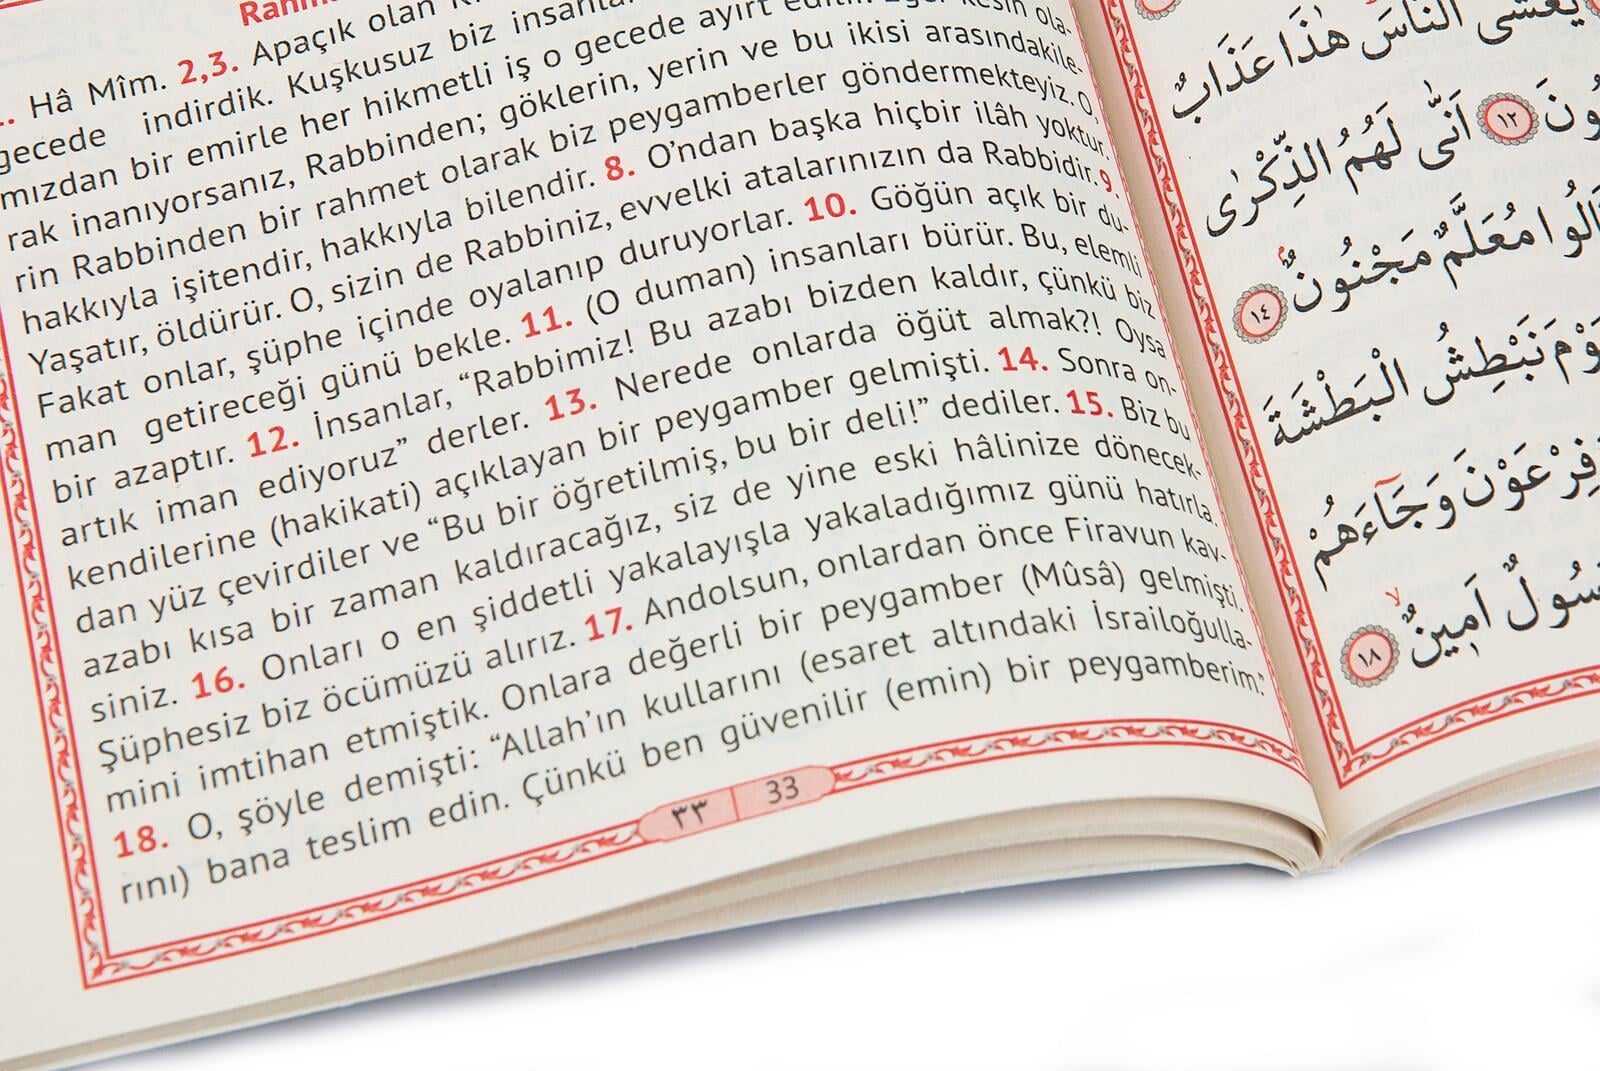 Hâ Mîm. 2,3. Apaçık olan
gecede indirdik. Kuşkusuz biz insanla
mızdan bir emirle her hikmetli iş o gecede ayırt
rak inanıyorsanız, Rabbinden; göklerin, yerin ve bu ikisi arasındakile-
rin Rabbinden bir rahmet olarak biz peygamberler göndermekteyiz. O,
hakkıyla işitendir, hakkıyla bilendir. 8. O'ndan başka hiçbir ilâh yoktur.
Yaşatır, öldürür. O, sizin de Rabbiniz, evvelki atalarınızın da Rabbidir. 9.
Fakat onlar, şüphe içinde oyalanıp duruyorlar. 10. Göğün açık bir du-
man getireceği günü bekle. 11. (O duman) insanları bürür. Bu, elemli
bir azaptır. 12. İnsanlar, “Rabbimiz! Bu azabı bizden kaldır, çünkü biz
artık iman ediyoruz” derler. 13. Nerede onlarda öğüt almak?! Oysa
kendilerine (hakikati) açıklayan bir peygamber gelmişti. 14. Sonra on-
dan yüz çevirdiler ve “Bu bir öğretilmiş, bu bir deli!” dediler. 15. Biz bu
azabı kısa bir zaman kaldıracağız, siz de yine eski hâlinize dönecek-
siniz. 16. Onları o en şiddetli yakalayışla yakaladığımız günü hatırla.
Şüphesiz biz öcümüzü alırız. 17. Andolsun, onlardan önce Firavun kav-
mini imtihan etmiştik. Onlara değerli bir peygamber (Mûsâ) gelmişti.
18. O, şöyle demişti: “Allah'ın kullarını (esaret altındaki İsrailoğulla-
rını) bana teslim edin. Çünkü ben güvenilir (emin) bir peygamberim.”
٣٣ 33
يَغْشَى النَّاسَ هٰذَا عَذَابٌ
١٢ اَنّٰى لَهُمُ الذِّكْرٰى
مُعَلَّمٌ مَجْنُونٌ ١٤
نَبْطِشُ الْبَطْشَةَ
فِرْعَوْنَ وَجَٓاءَهُمْ
اَم۪ينٌ ١٨